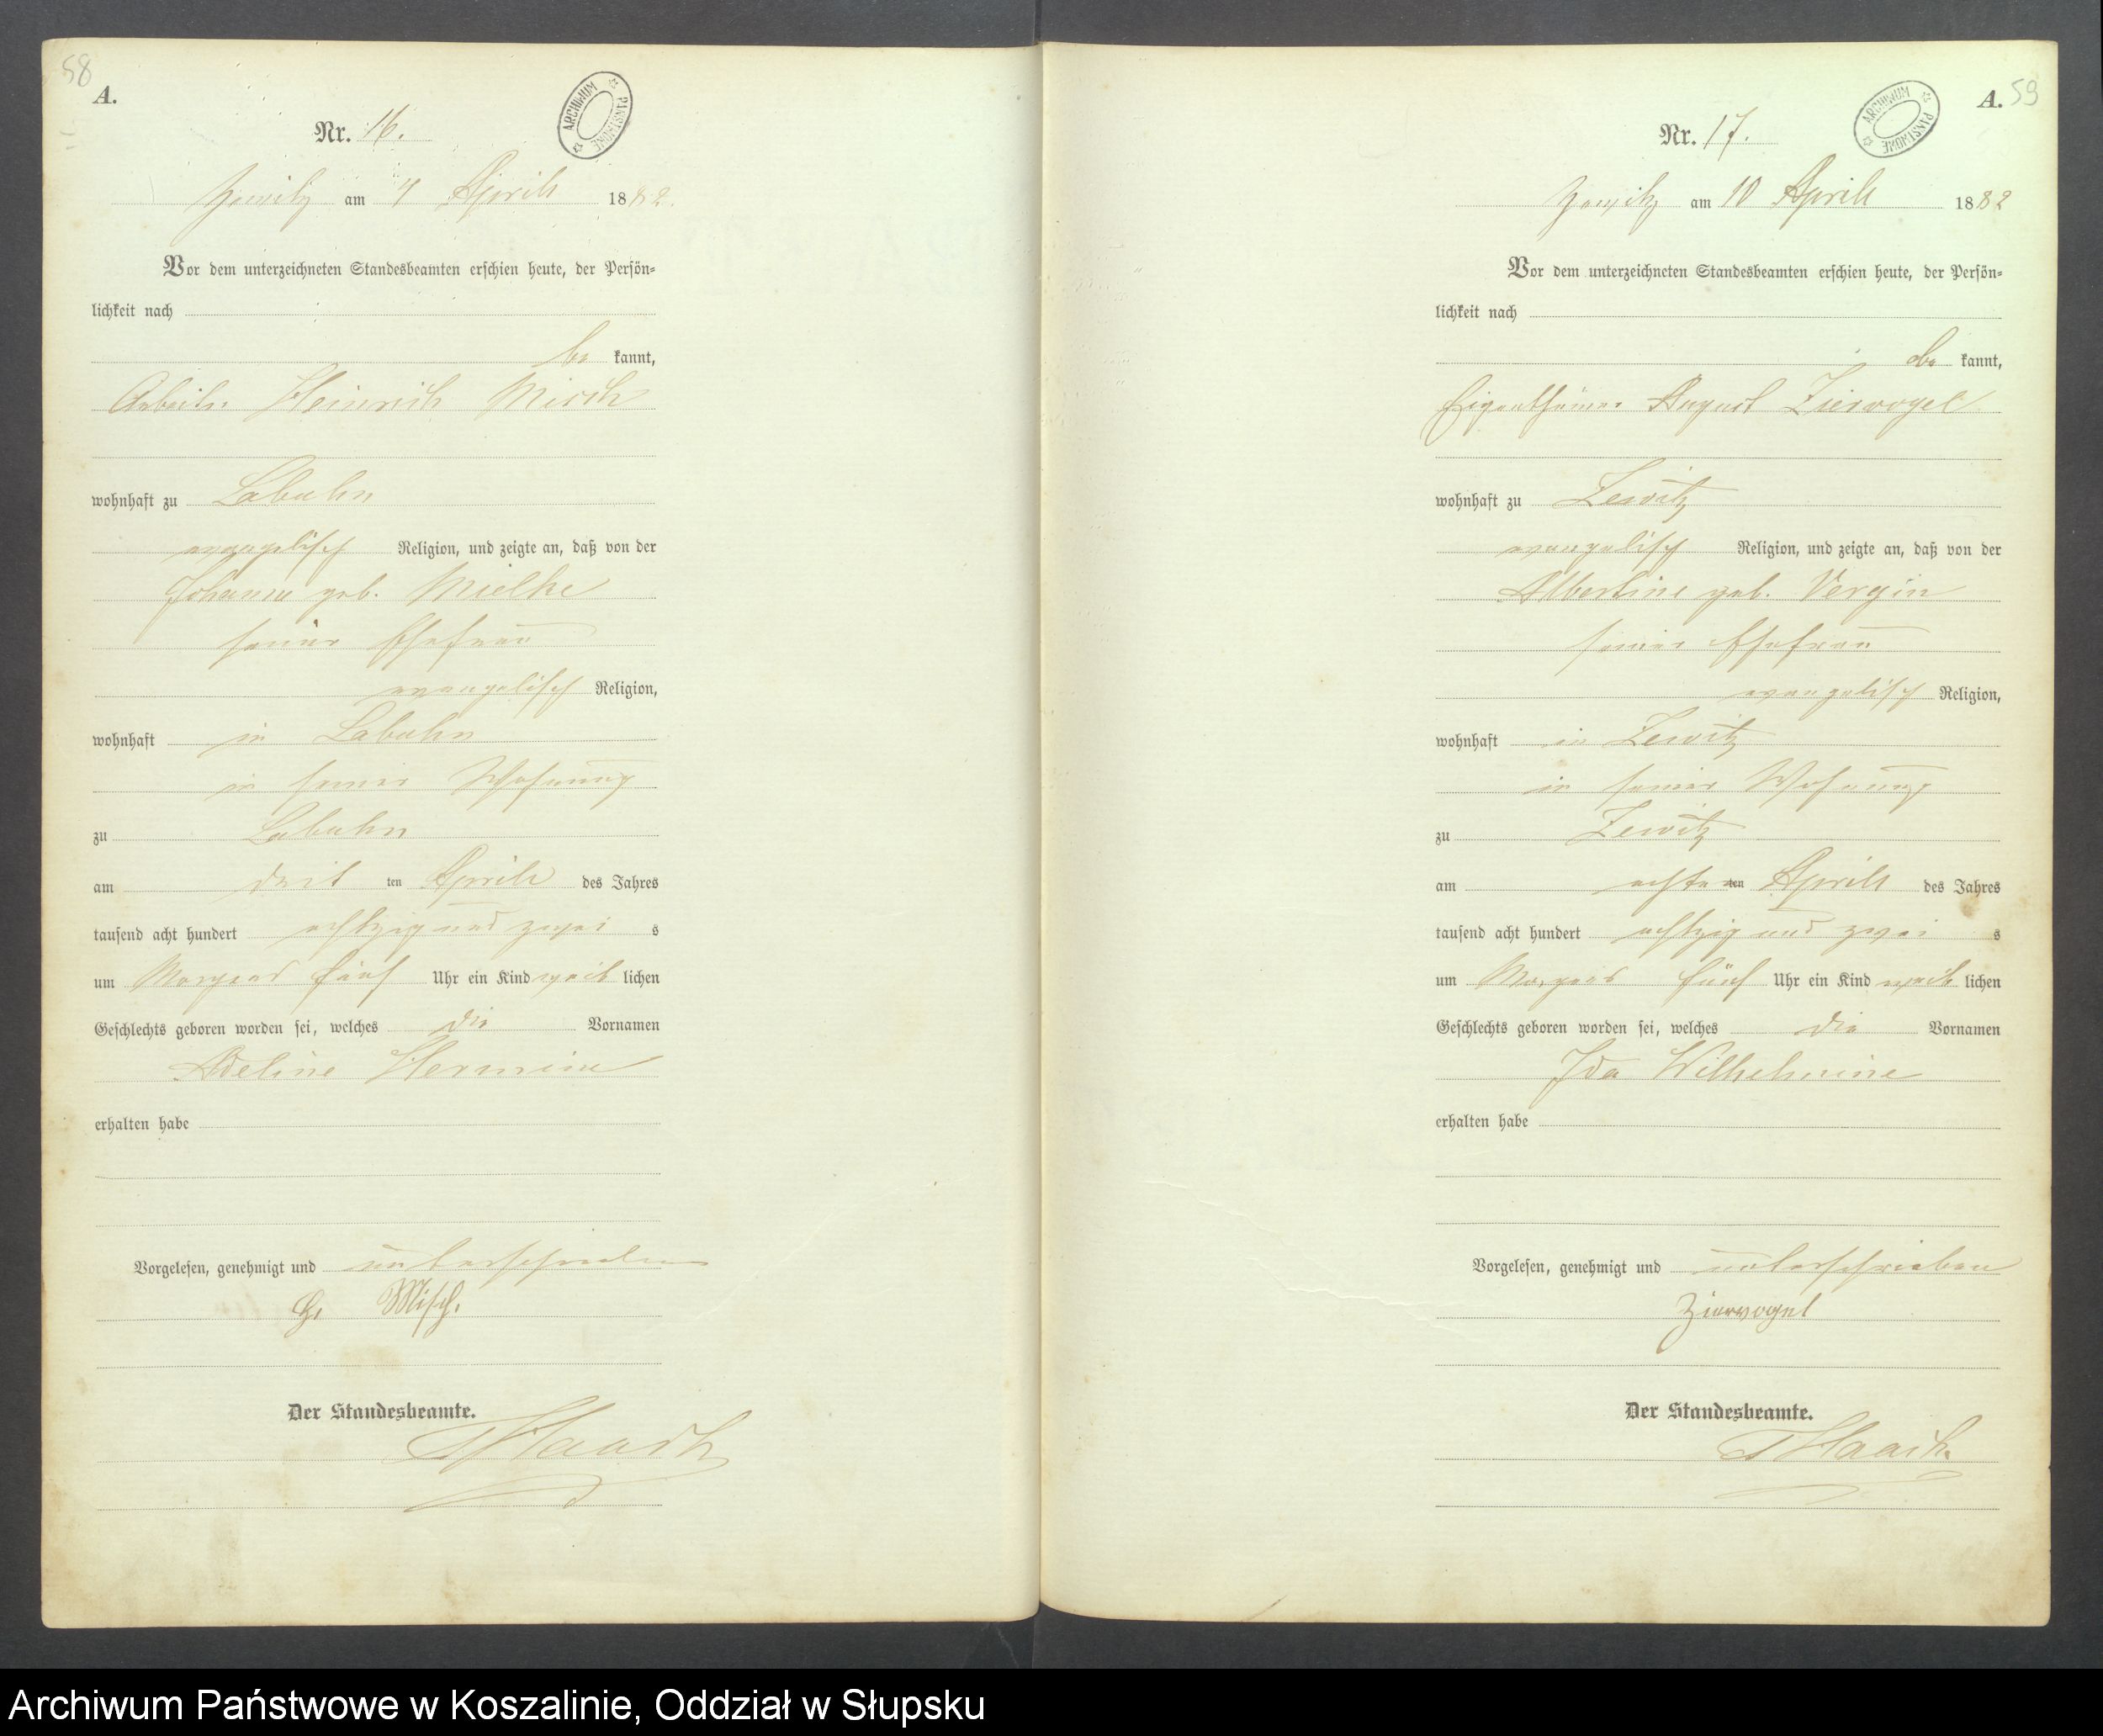 58
A.
Nr. 16.
ARCHIWUM PAŃSTWOWE
Zewitz am 4 April 1882.
Vor dem unterzeichneten Standesbeamten erschien heute, der Persön=
lichkeit nach
be kannt,
Arbeiter Heinrich Misch
wohnhaft zu Labuhn
evangelisch Religion, und zeigte an, daß von der
Johanna geb. Mielke
seiner Ehefrau
evangelisch Religion,
wohnhaft in Labuhn
in seiner Wohnung
zu Labuhn
am ten April des Jahres
tausend acht hundert achtzig und zwei s
um Morgens fünf Uhr ein Kind weib lichen
Geschlechts geboren worden sei, welches die Vornamen
Adeline Hermine
erhalten habe
Vorgelesen, genehmigt und unterschrieben
H. Misch.
Der Standesbeamte.
Haack
A. 59
Nr. 17.
ARCHIWUM PAŃSTWOWE
Zewitz am 10 April 1882
Vor dem unterzeichneten Standesbeamten erschien heute, der Persön=
lichkeit nach
be kannt,
Eigenthümer August Ziervogel
wohnhaft zu Zewitz
evangelisch Religion, und zeigte an, daß von der
Albertine geb. Vergin
seiner Ehefrau
evangelisch Religion,
wohnhaft in Zewitz
in seiner Wohnung
zu Zewitz
am achten ten April des Jahres
tausend acht hundert achtzig und zwei s
um Morgens fünf Uhr ein Kind weib lichen
Geschlechts geboren worden sei, welches die Vornamen
Ida Wilhelmine
erhalten habe
Vorgelesen, genehmigt und unterschrieben
Ziervogel
Der Standesbeamte.
Haack
Archiwum Państwowe w Koszalinie, Oddział w Słupsku